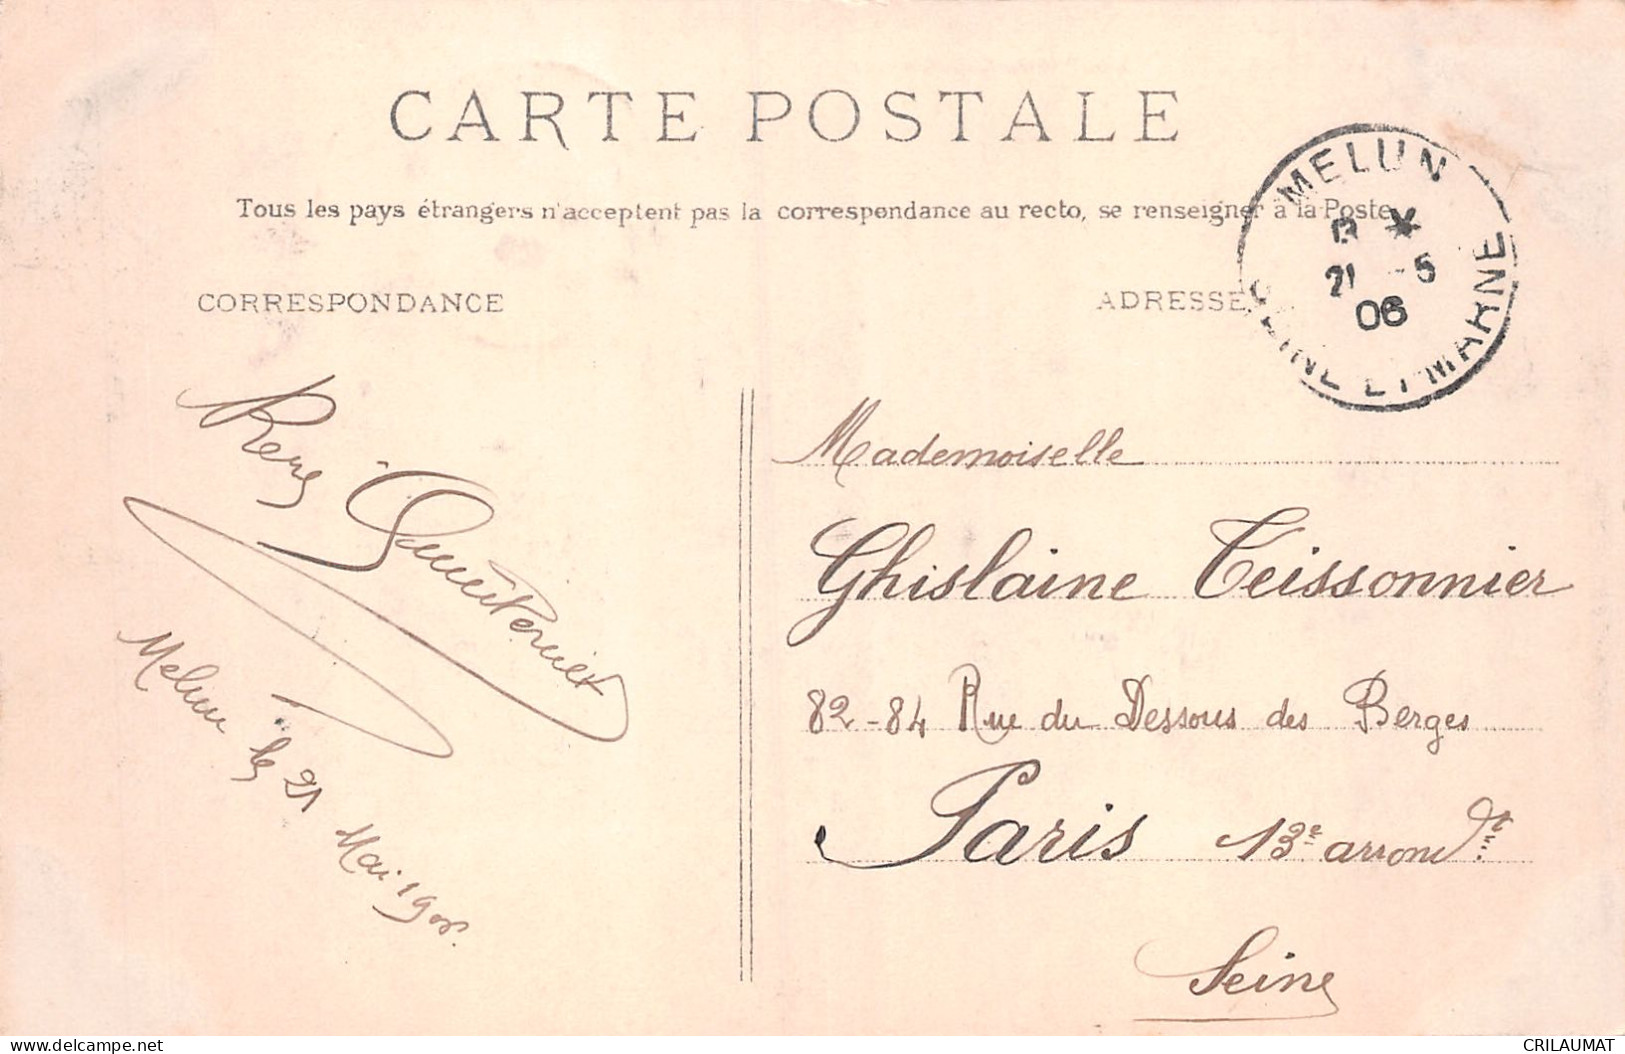 CARTE POSTALE
Tous les pays étrangers n'acceptent pas la correspondance au recto, se renseigner à la Poste
CORRESPONDANCE
ADRESSE
MELUN
21 - 5
06
SEINE ET MARNE
René
Melun le 21 Mai 1906.
Mademoiselle
Ghislaine Teissonnier
82-84 Rue du Dessous des Berges
Paris 13e arrondt
Seine
delcampe.net
CRILAUMAT